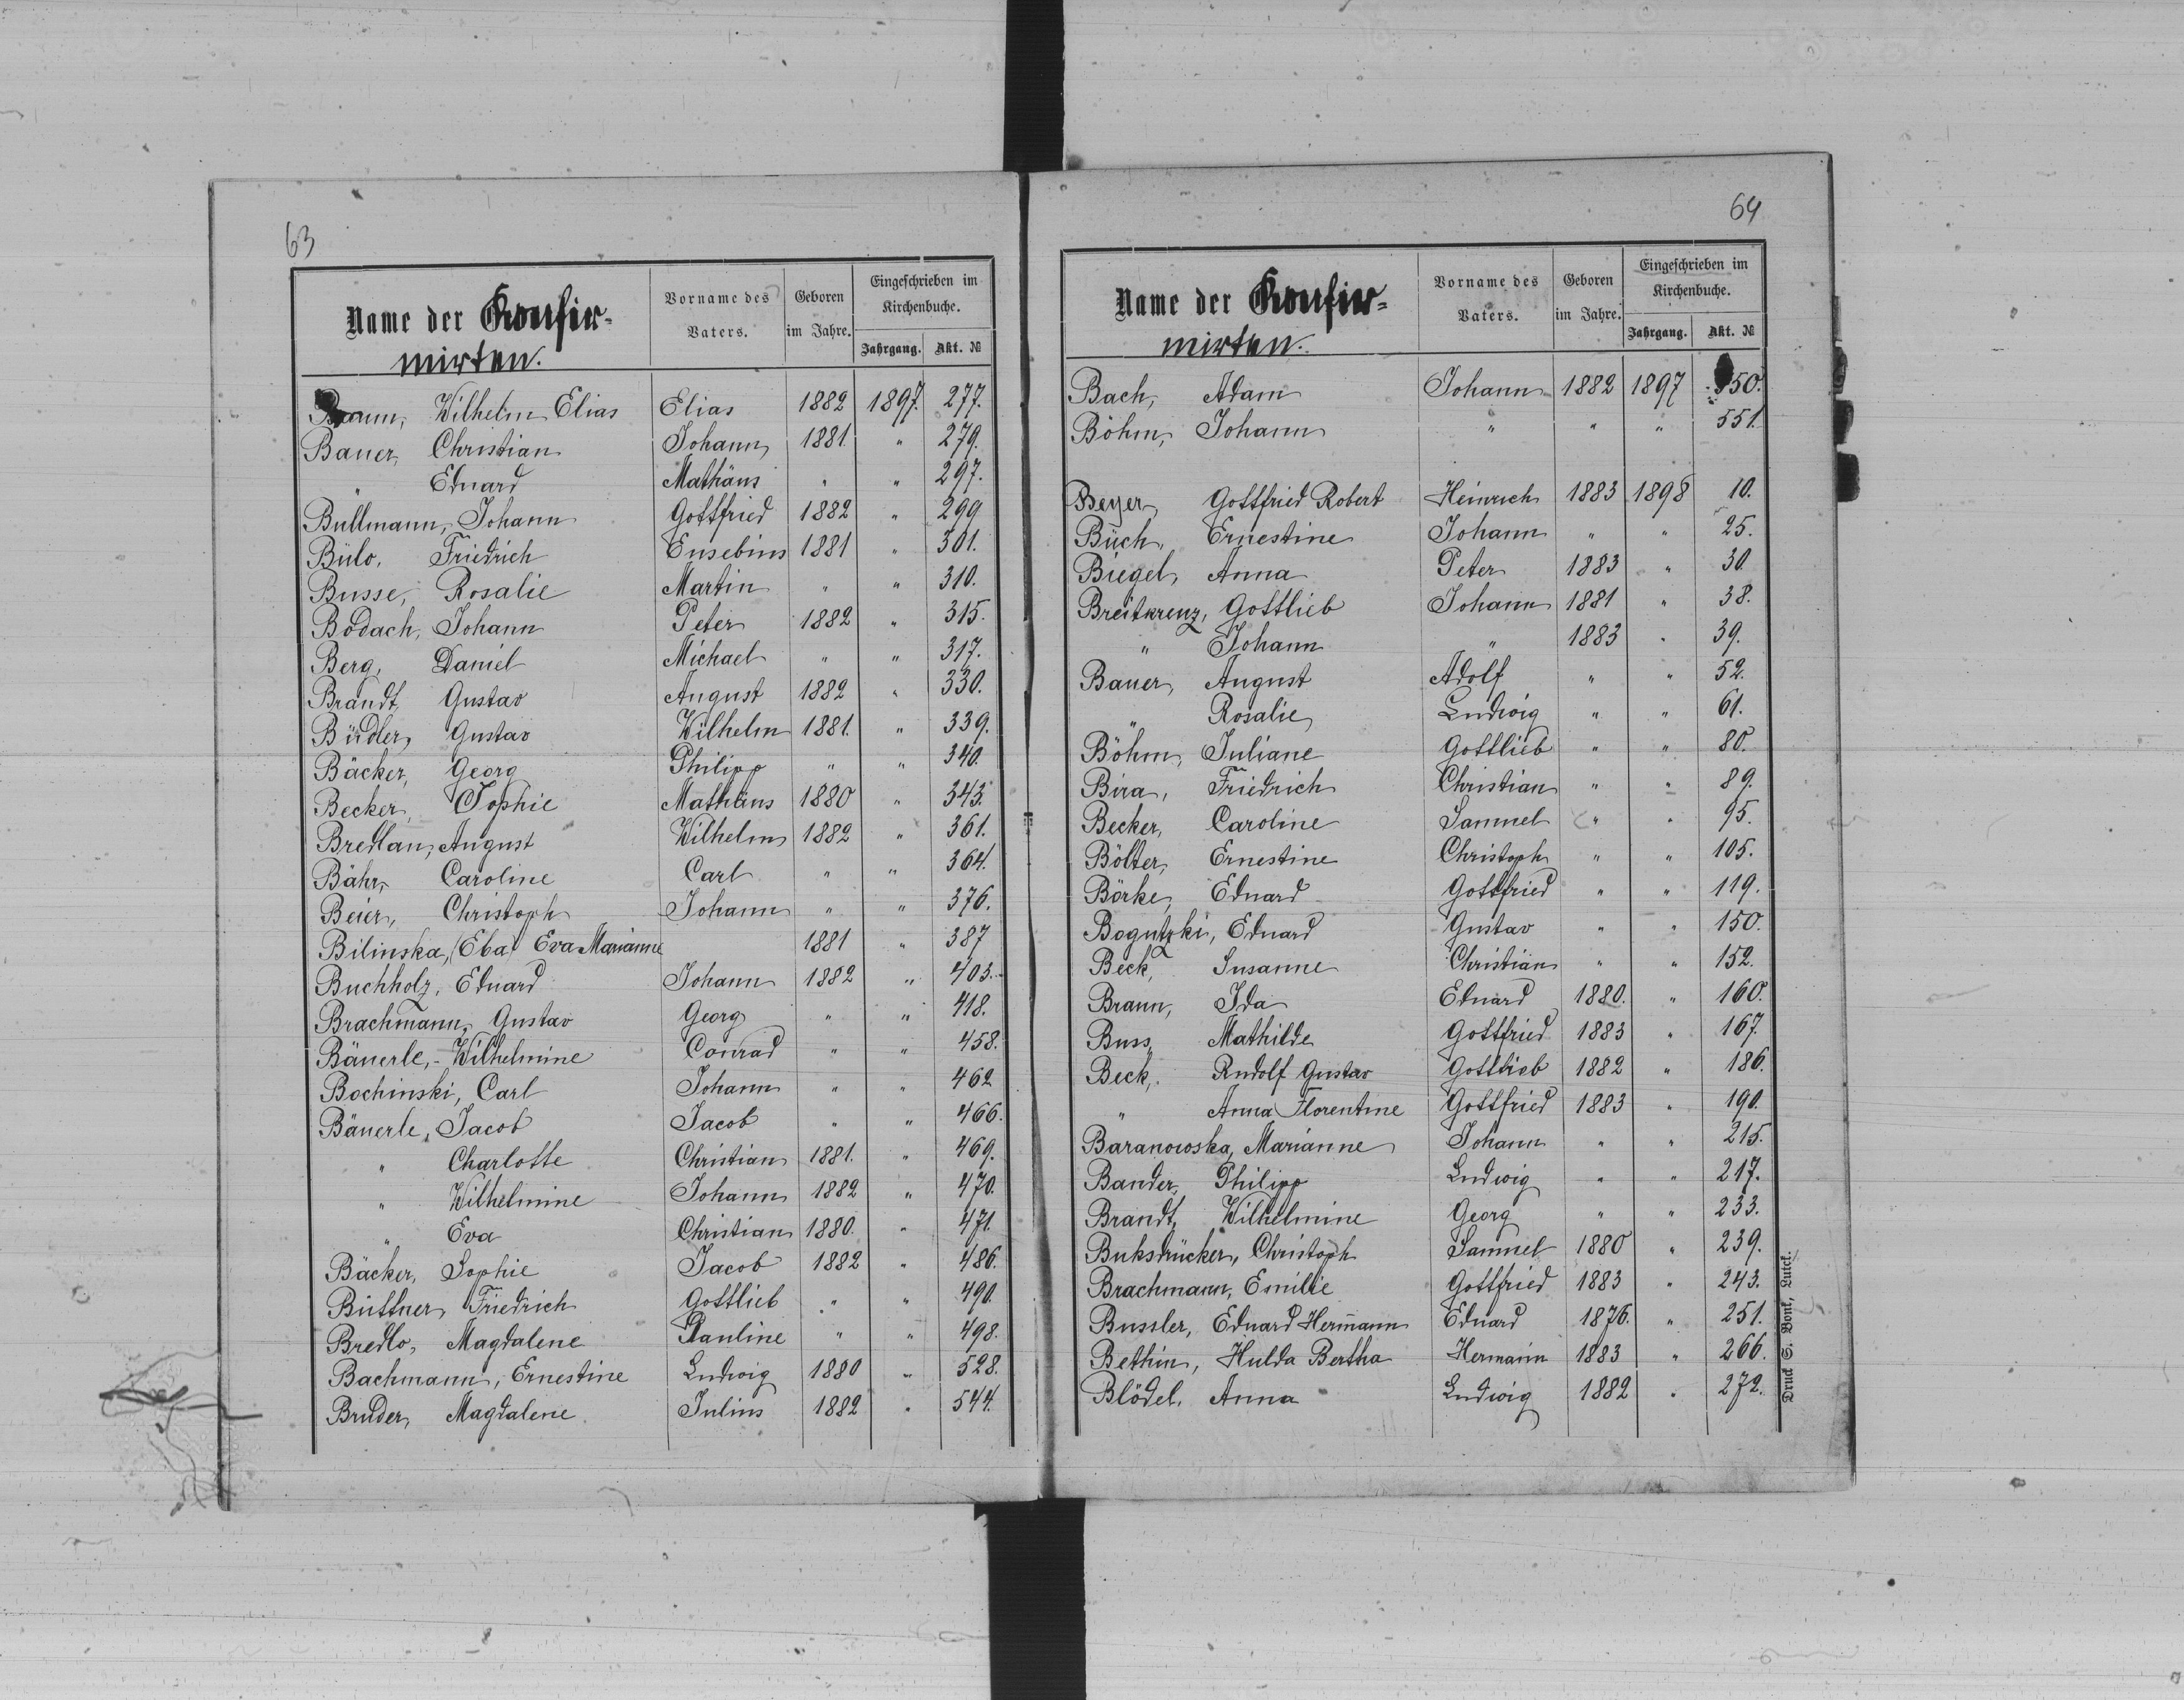 63
Name der Konfir-
mirten.
Vorname des Vaters.
Geboren im Jahre.
Eingeschrieben im Kirchenbuche.
Jahrgang. Akt. №
Baum, Wilhelm Elias Elias 1882 1897. 277.
Bauer, Christian Johann 1881. " 279.
" Eduard Mathäus " " 297.
Bullmann, Johann Gottfried 1882 " 299
Bülo, Friedrich Eusebius 1881 " 301.
Busse, Rosalie Martin " " 310.
Bodach, Johann Peter 1882 " 315.
Berg, Daniel Michael " " 317.
Brandt, Gustav August 1882 " 330.
Büdler, Gustav Wilhelm 1881. " 339.
Bäcker, Georg Philipp " " 340.
Becker, Sophie Mathäus 1880 " 343.
Bredlau, August Wilhelm 1882 " 361.
Bähr, Caroline Carl " " 364.
Beier, Christoph Johann " " 376.
Bilinska, (Eba) Eva Marianne 1881 " 387
Buchholz, Eduard Johann 1882 " 403.
Brachmann, Gustav Georg " " 418.
Bäuerle, Wilhelmine Conrad " " 458.
Bochinski, Carl Johann " " 462
Bäuerle, Jacob Jacob " " 466.
" Charlotte Christian 1881. " 469.
" Wilhelmine Johann 1882 " 470.
" Eva Christian 1880. " 471.
Bäcker, Sophie Jacob 1882 " 486.
Büttner, Friedrich Gottlieb " " 490.
Bredlo, Magdalene Pauline " " 498.
Bachmann, Ernestine Ludwig 1880 " 528.
Bruder, Magdalene Julius 1882 " 544.
64
Name der Konfir-
mirten.
Vorname des Vaters.
Geboren im Jahre.
Eingeschrieben im Kirchenbuche.
Jahrgang. Akt. №
Bach, Adam Johann 1882 1897 550.
Böhm, Johann " " " 551.
Beyer, Gottfried Robert Heinrich 1883 1898 10.
Büch, Ernestine Johann " " 25.
Biegel, Anna Peter 1883 " 30
Breitkreuz, Gottlieb Johann 1881 " 38.
" Johann " 1883 " 39.
Bauer, August Adolf " " 52.
" Rosalie Ludwig " " 61.
Böhm, Juliane Gottlieb " " 80.
Bira, Friedrich Christian " " 89.
Becker, Caroline Samuel " " 95.
Bölter, Ernestine Christoph " " 105.
Börke, Eduard Gottfried " " 119.
Bogutzki, Eduard Gustav " " 150.
Beck, Susanne Christian " " 152.
Braun, Ida Eduard 1880. " 160.
Buss, Mathilde Gottfried 1883 " 167.
Beck, Rudolf Gustav Gottlieb 1882 " 186.
" Anna Florentine Gottfried 1883 " 190.
Baranowska, Marianne Johann " " 215.
Bander, Philipp Ludwig " " 217.
Brandt, Wilhelmine Georg " " 233.
Buksdrücker, Christoph Samuel 1880 " 239.
Brachmann, Emilie Gottfried 1883 " 243.
Bussler, Eduard Hermann Eduard 1876. " 251.
Bethin, Hulda Bertha Hermann 1883 " 266.
Blödel, Anna Ludwig 1882 " 272.
Druck S. Bont, Lutck.